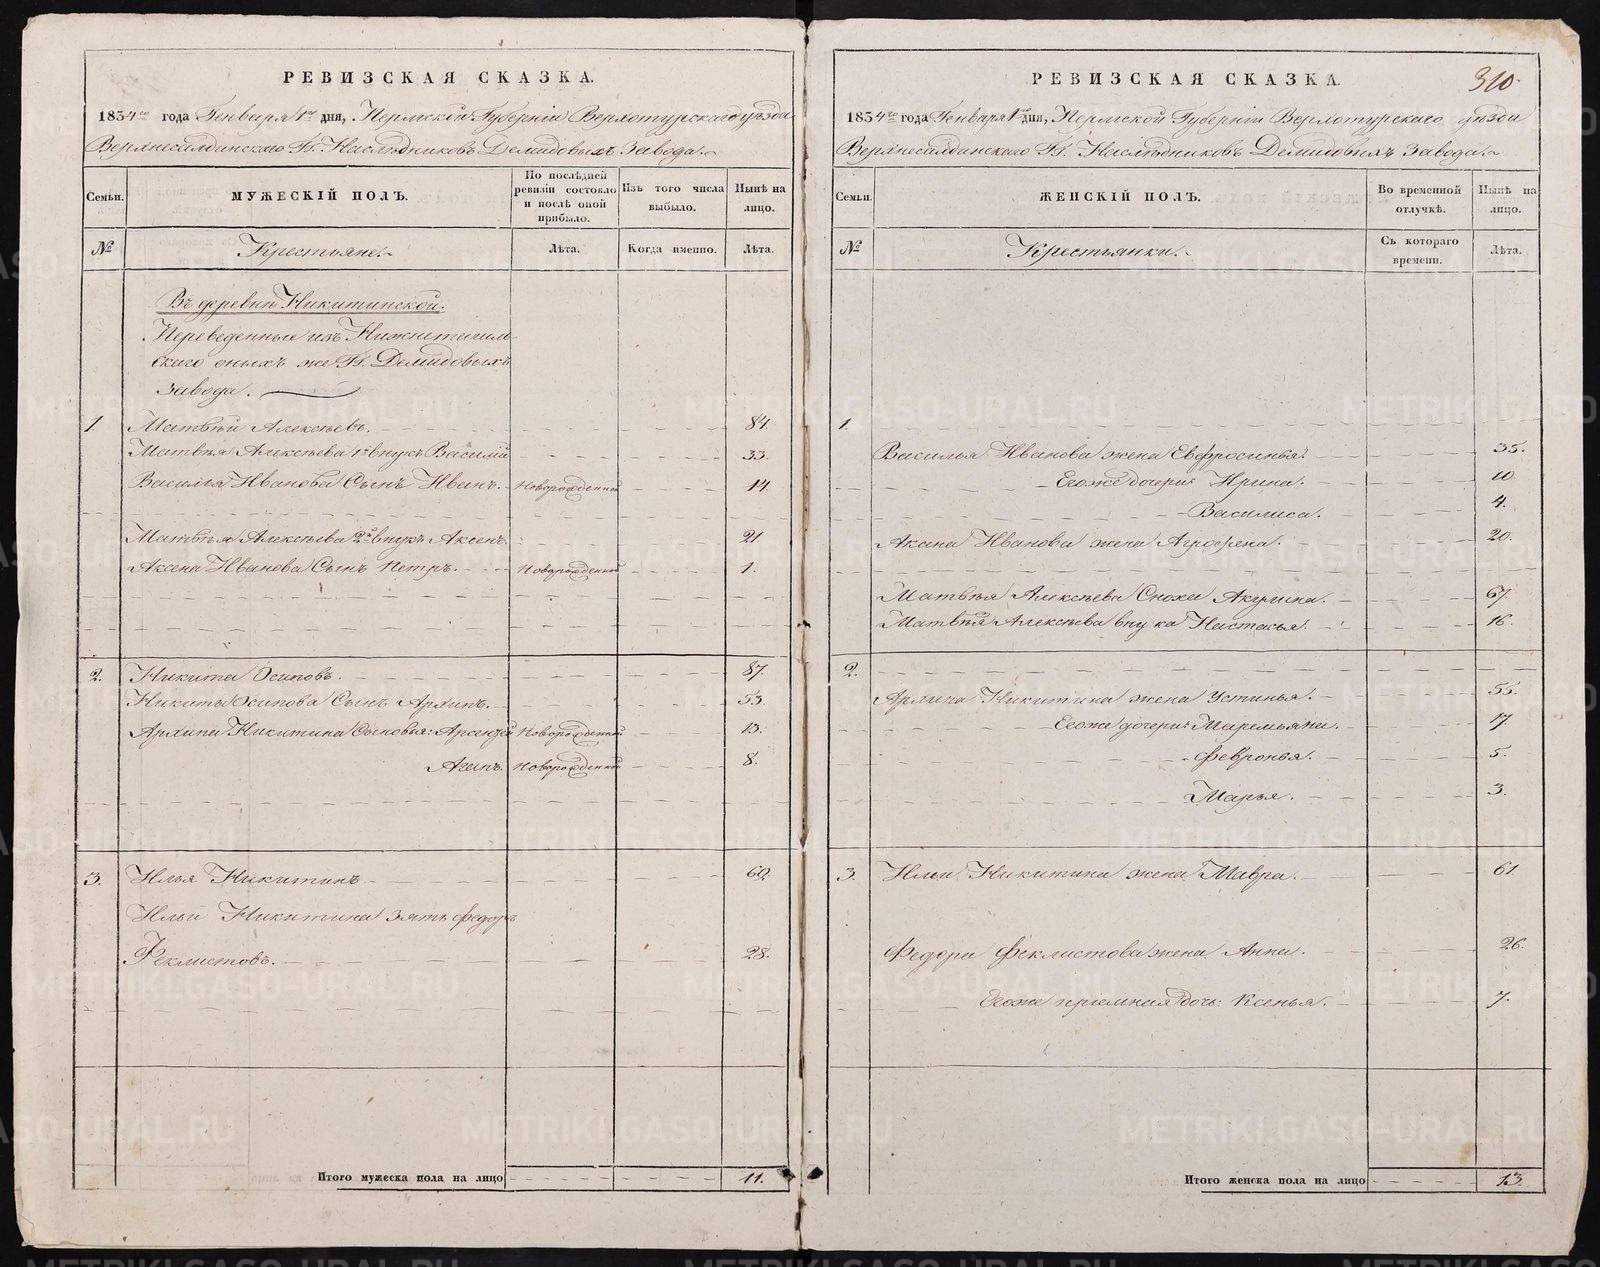 РЕВИЗСКАЯ СКАЗКА.
1834го года Генваря 1го дня, Пермской Губерніи Верхотурскаго уѣзда
Верхнесалдинскаго Гг. Наслѣдниковъ Демидовыхъ Завода.
Семьи.
МУЖЕСКІЙ ПОЛЪ.
По послѣдней ревизіи состояло и послѣ оной прибыло.
Изъ того числа выбыло.
Нынѣ на лицо.
№
Крестьяне.
Лѣта.
Когда именно.
Лѣта.
Въ деревнѣ Никитинской.
Переведенные изъ Нижнетагиль-
скаго оныхъ же Гг. Демидовыхъ
Завода.
1. Матвѣй Алексѣевъ. 84.
Матвѣя Алексѣева 1й внукъ Василій 33.
Василья Иванова Сынъ Иванъ. Новорожденной 14.
Матвѣя Алексѣева 2й внукъ Аксенъ. 21
Аксена Иванова Сынъ Петръ. Новорожденной 1.
2. Никита Осиповъ. 87.
Никиты Осипова Сынъ Архипъ. 53.
Архипа Никитина Сыновья: Арсентей Новорожденной 13.
Агапъ. Новорожденной 8.
3. Илья Никитинъ 60.
Ильи Никитина зять Федоръ
Феклистовъ. 28.
Итого мужеска пола на лицо 11.
РЕВИЗСКАЯ СКАЗКА. 310.
1834го года Генваря 1го дня, Пермской Губерніи Верхотурскаго уѣзда
Верхнесалдинскаго Гг. Наслѣдниковъ Демидовыхъ Завода.
Семьи.
ЖЕНСКІЙ ПОЛЪ.
Во временной отлучкѣ.
Нынѣ на лицо.
№
Крестьянки.
Съ котораго времени.
Лѣта.
1.
Василья Иванова жена Евфросинья. 35.
Его же дочери: Ирина. 10.
Василиса. 4.
Аксена Иванова жена Агрофена. 20.
Матвѣя Алексѣева Сноха Акулина. 67.
Матвѣя Алексѣева внука Настасья. 16.
2.
Архипа Никитина жена Устинья. 55.
Его же дочери: Маремьяна. 17
Февронья. 5.
Марья. 3.
3. Ильи Никитина жена Мавра. 61.
Федора Феклистова жена Анна. 26.
Его же приемная дочь: Ксенья. 7.
Итого женска пола на лицо 13.
METRIKI.GASO-URAL.RU